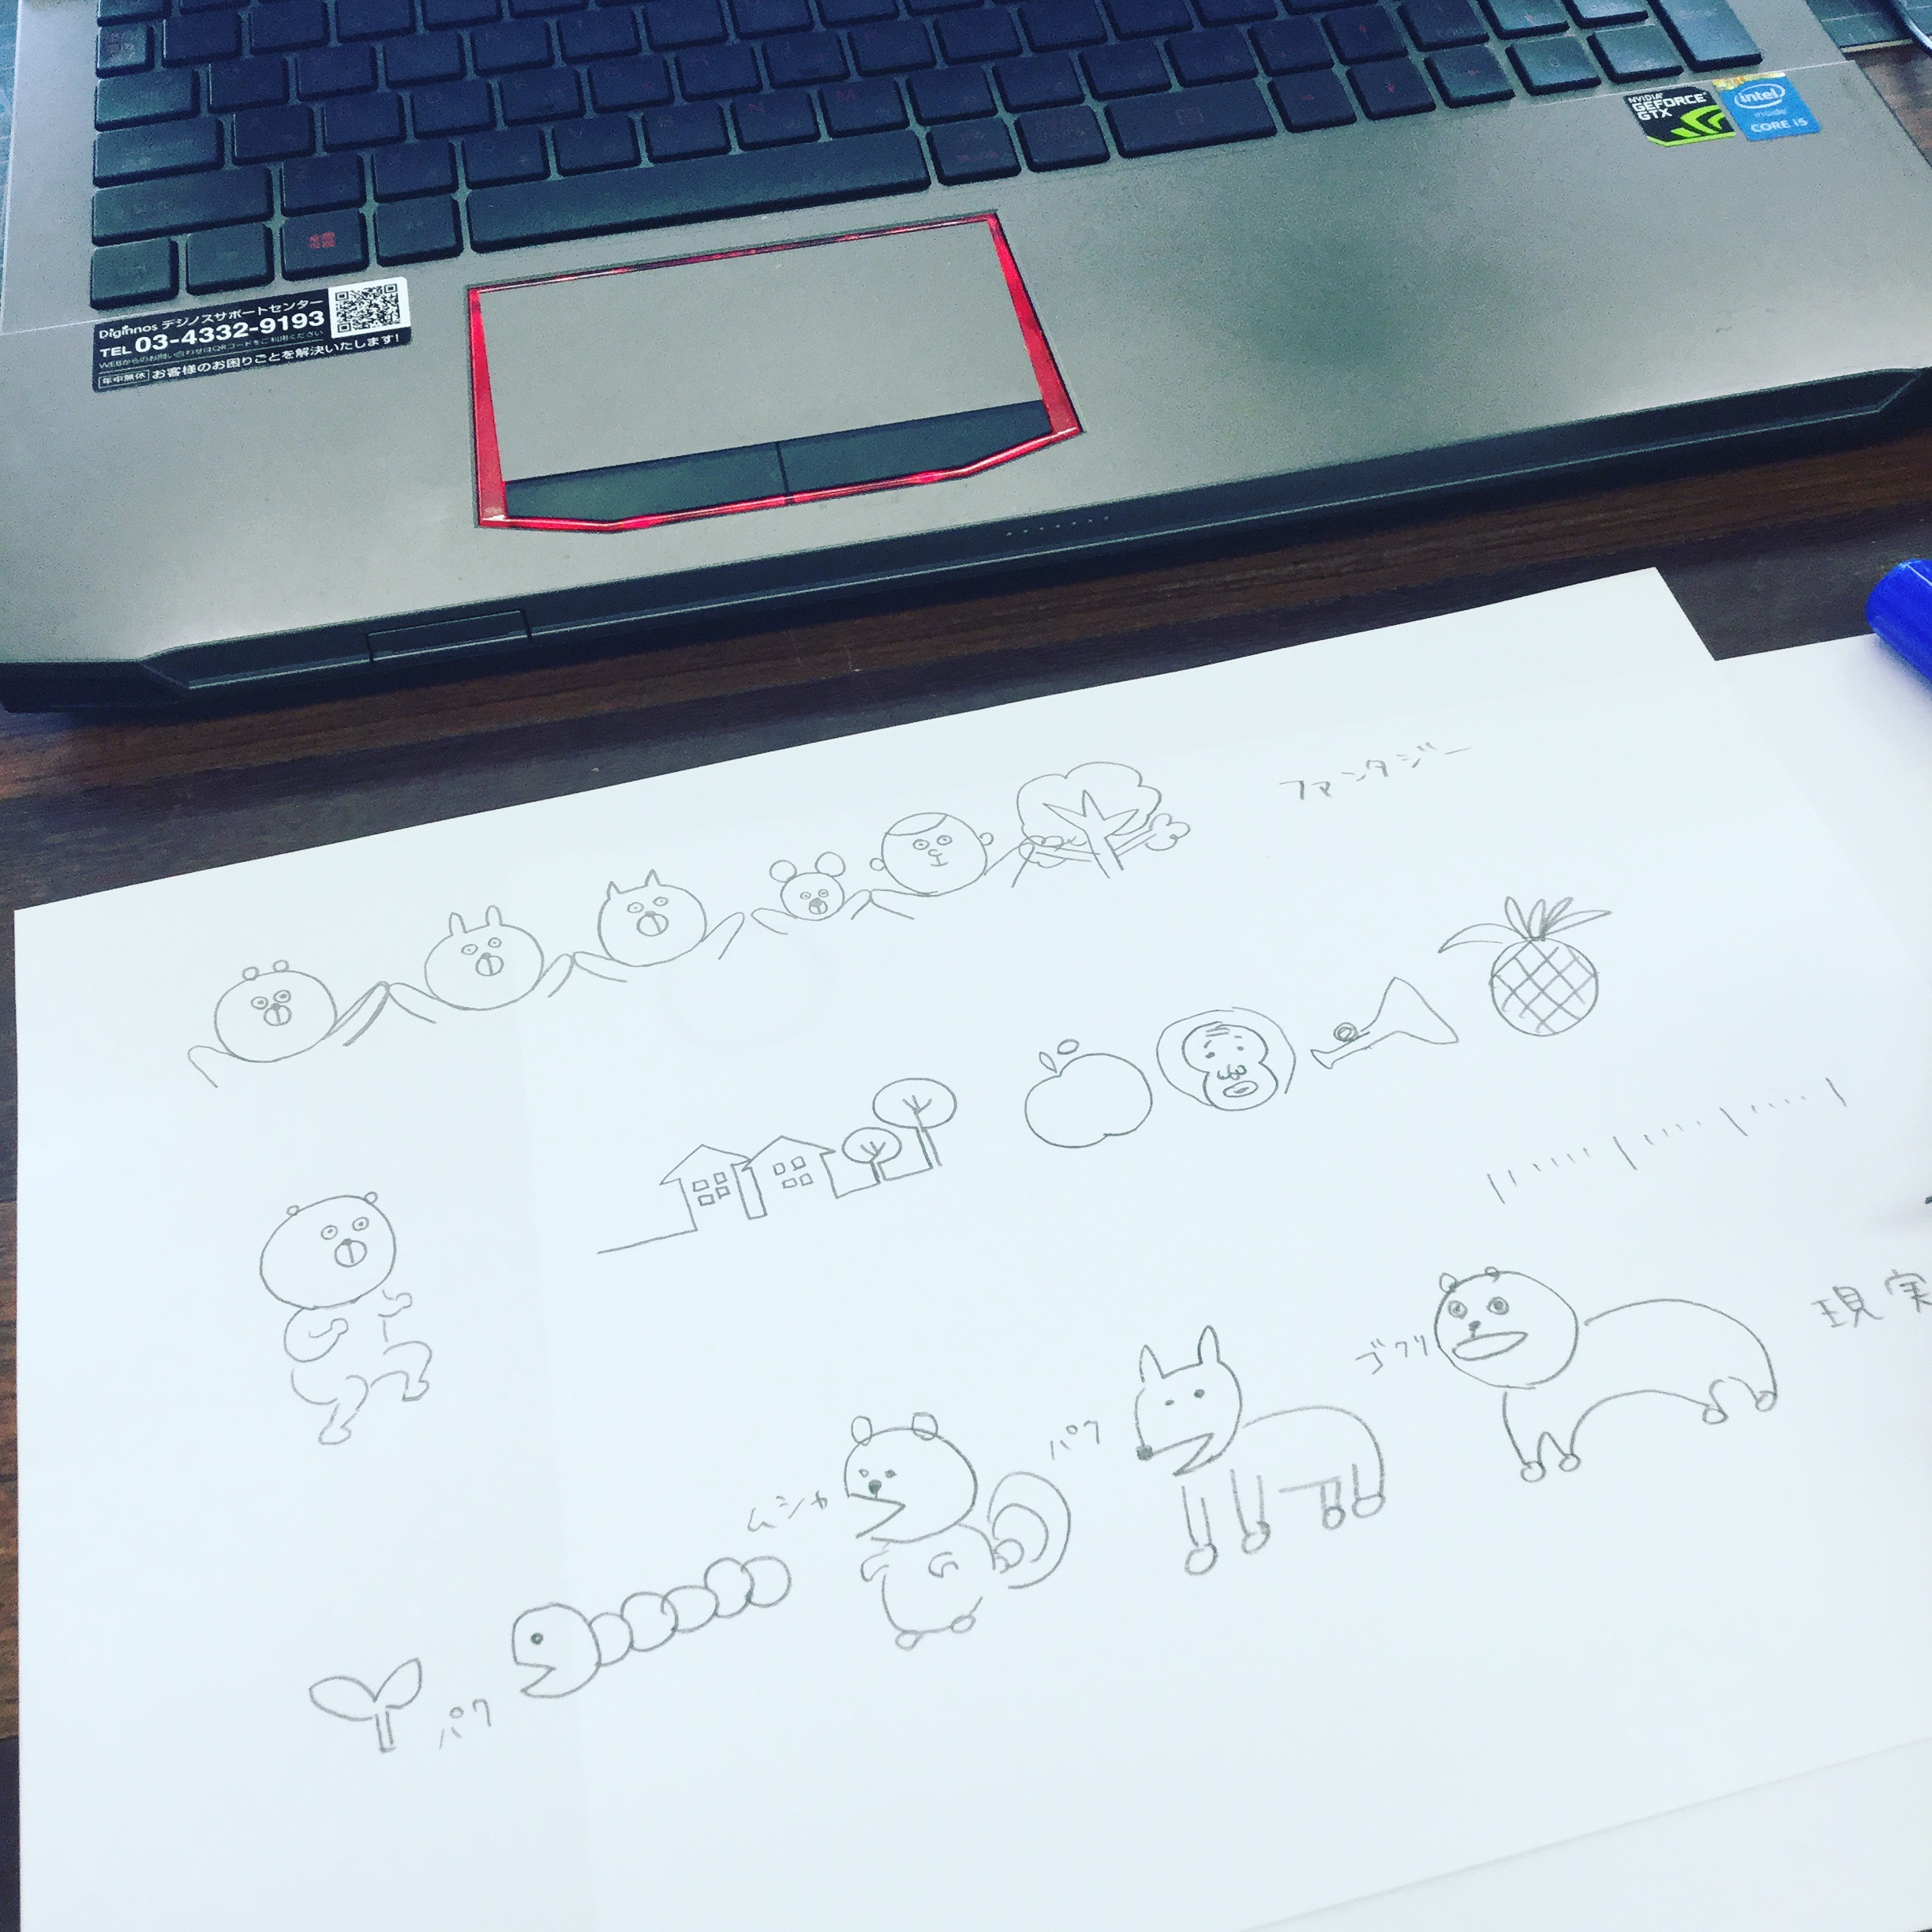 NVIDIA
GEFORCE
GTX
intel
inside
CORE i5
Diginnos デジノスサポートセンター
TEL 03-4332-9193
WEBからのお問い合わせはQRコードをご利用ください
年中無休 お客様のお困りごとを解決いたします!
ファンタジー
現実
ゴクリ
パク
ムシャ
パク